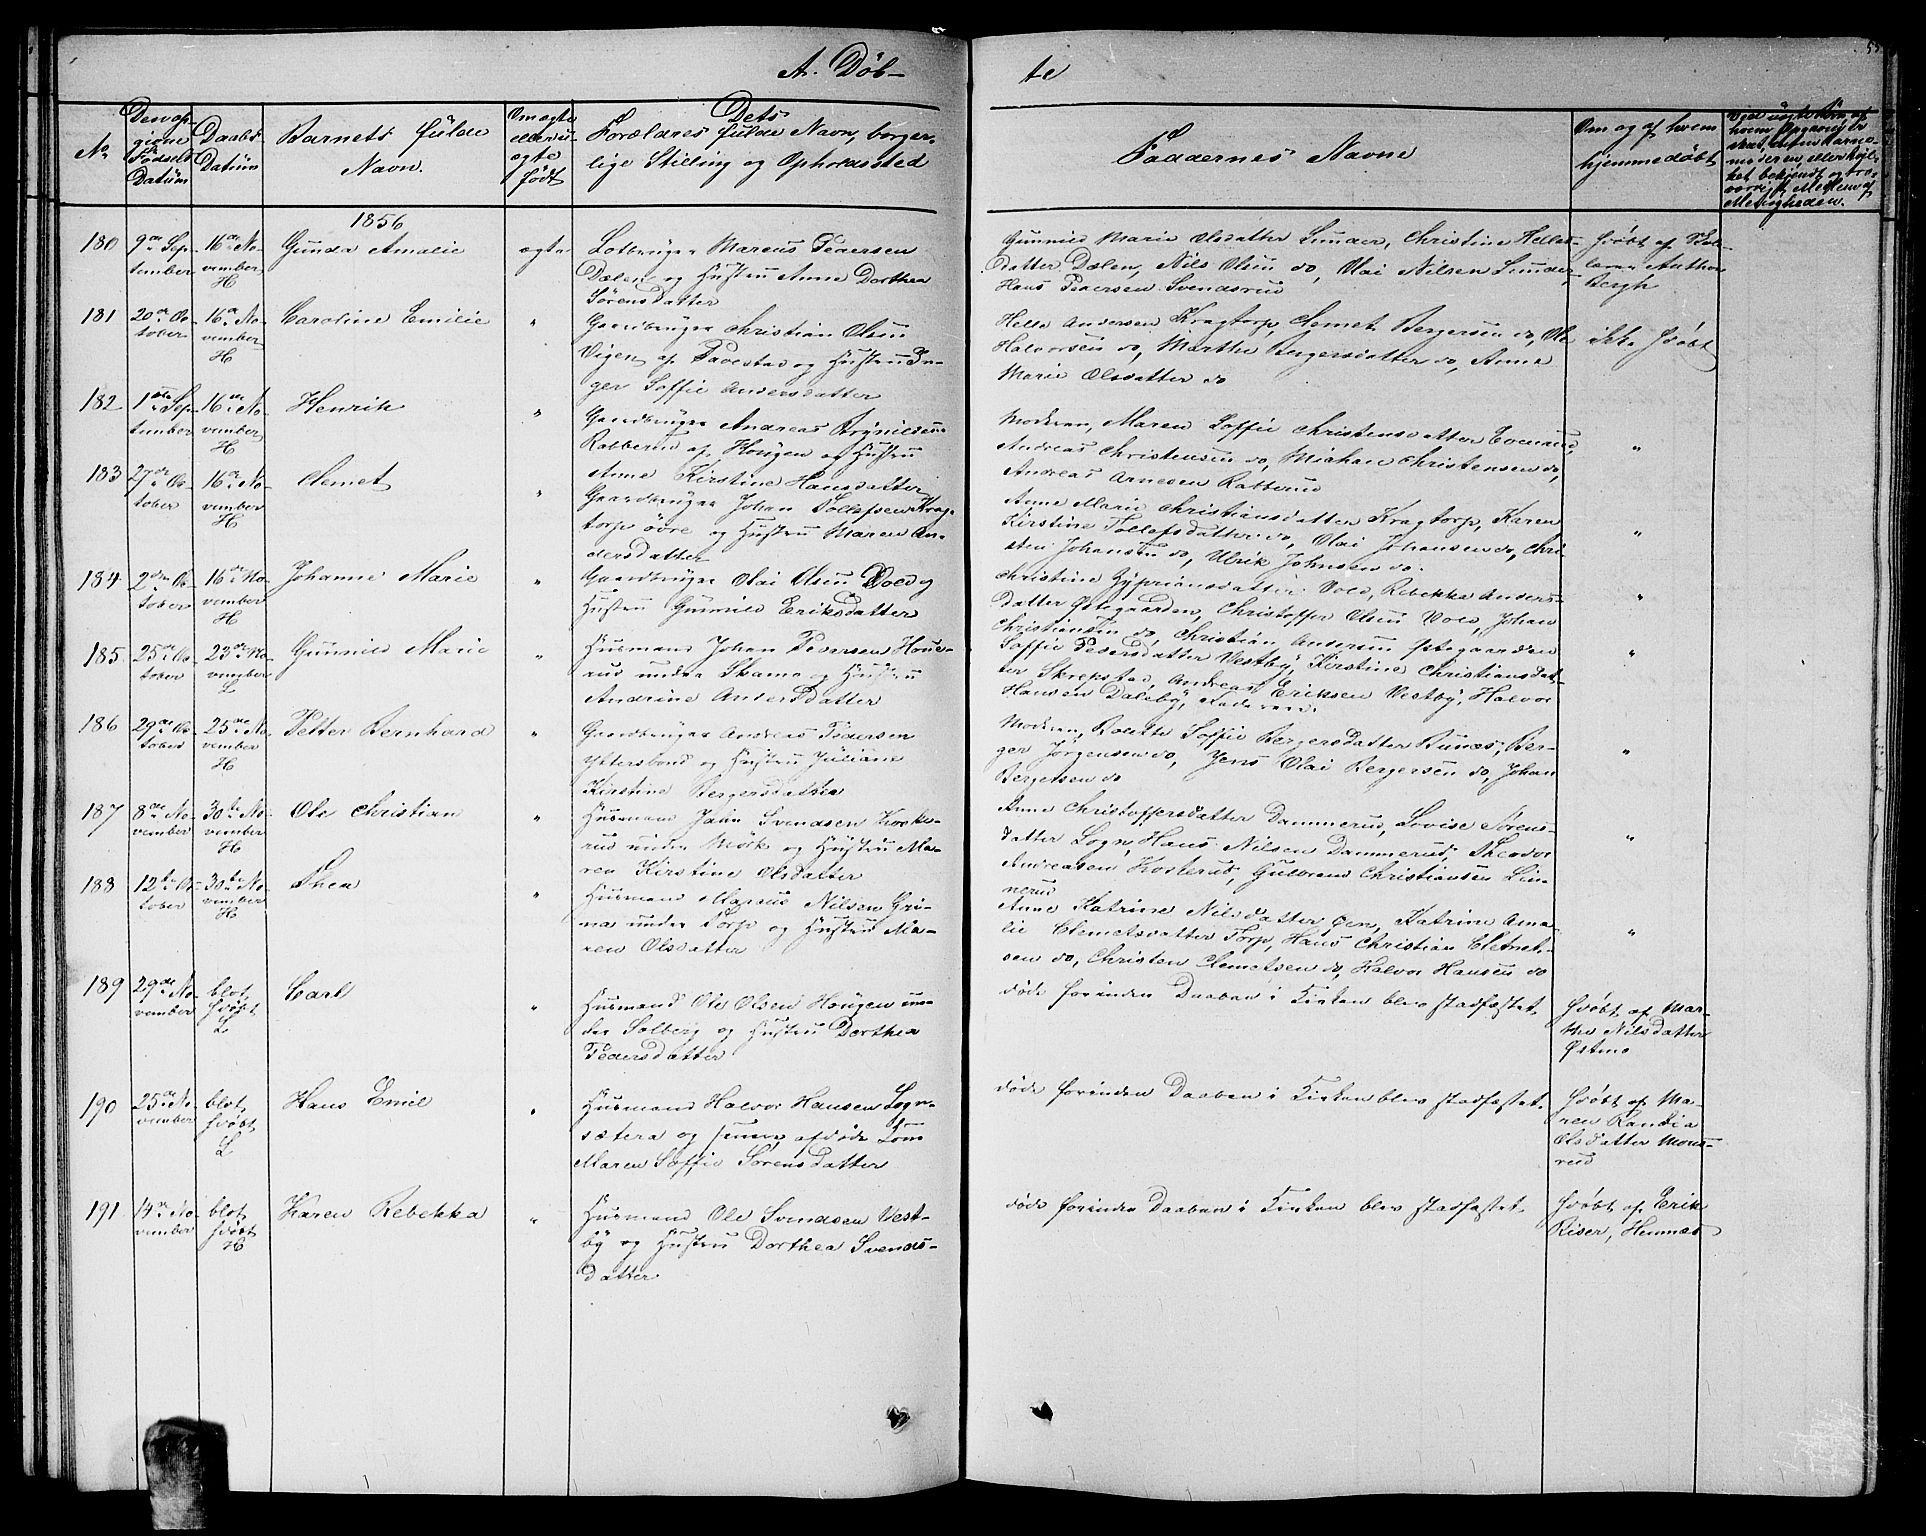 A. Döb-
te
No
Den op-
givne
Födsels
Datüm
Daabs
Datüm
Barnets fülde
Navn.
Om ægte
eller u-
ægte
födt
Dets
Forældres fülde Navn, borger-
lige Stilling og Opholdssted
Faddernes Navne
Om og af hvem
hjemmedöbt
1856
180
9de Sep-
tember
16de No-
vember
H
Gunda Amalie
ægte
Lodbruger Marcus Pedersen
Dælen og Hustru Anne Dorthea
Sørensdatter
Gunnild Marie Olsdatter Sunder, Christine Helles-
datter Dælen, Nils Olsen do, Olai Nilsen Sunder,
Hans Pedersen Svendsrud
hdöbt af Sko-
lerer Anthon
Bergh
181
20de Oc-
tober
16de No-
vember
H
Caroline Emilie
"
Gaardbruger Christian Olsen
Vigen af Tavestad og Hustru In-
ger Soffie Andersdatter
Helle Andersen Kragtorp, Clemet Bergersen do, Ole
Halvorsen do, Marthe Bergersdatter do, Anne
Marie Olsdatter do
ikke hdöbt
182
1ste Sep-
tember
16de No-
vember
H
Henrik
"
Gaardbruger Andreas Brynildsen
Ratberud af Hougen og Hustru
Anne Kirstine Hansdatter
Moderen, Maren Soffie Christensdatter
Andreas Christensen do, Michael Christensen do,
Andreas Arnesen Ratterud
"
183
27de Oc-
tober
16de No-
vember
H
Clemet
"
Gaardbruger Johan Tolefsen Krag-
torp övre og Hustru Maren An-
dersdatter
Anne Marie Christiansdatter Kragtorp, Karen
Kirstine Tollefsdatter do, Olai Johansen do, Chri-
sten Johansen do, Ulrik Johnsen do.
"
184
2den Oc-
tober
16de No-
vember
H
Johanne Marie
"
Gaardbruger Olai Olsen Vold og
Hustru Gunnild Eriksdatter
Christine Gypriansdatter Vold, Rebekka Anders-
datter Østegaarden, Christoffer Olsen Vold, Johan
Christiansen do, Christian Andersen Østegaarden
"
185
25de Oc-
tober
23de No-
vember
L
Gunnild Marie
"
Husmand Johan Pedersen Houe-
rud under Skamo og Hustru
Andrine Andersdatter
Soffie Pedersdatter Vestby, Kirstine Christiansdat-
ter Skrepstad, Andreas Eriksen Vestby, Halvor
Hansen Daleby, Faderen.
"
186
29de Oc-
tober
25de No-
vember
H
Petter Bernhard
"
Gaardbruger Andreas Pedersen
Yttersbond og Hustru Juliane
Kirstine Bergersdatter
Moderen, Rolette Soffie Bergersdatter Bunæs, Ber-
ger Jörgensen do, Jens Olai Bergersen do, Johan
Bergersen do
"
187
8de No-
vember
30te No-
vember
H
Ole Christian
"
Husmand Jahn Svendsen Kocke-
rud under Mörk og Hustru Ma-
ren Kirstine Olsdatter
Anne Christoffersdatter Dammerud, Lovise Sørens-
datter Sogn, Hans Nilsen Dammerud, Theodor
Andreassen Kosterud, Gulbrand Christiansen Lin-
nerud
"
188
12te Oc-
tober
30te No-
vember
H
Thea
"
Husmand Marcus Nilsen Gri-
na under Torp og Hustru Ma-
ren Olsdatter
Anne Katrine Nilsdatter Øen, Katrine Ama-
lie Clemetsdatter Torp, Hans Christian Clemet-
sen do, Christen Clemetsen do, Halvor Hansen do
"
189
29de No-
vember
blot
hdöbt
L
Carl
"
Husmand Ole Olsen Hougen un-
der Solberg og Hustru Dorthea
Pedersdatter
döde forinden Daaben i Kirken blev stadfæstet.
hdöbt af Mar-
the Nilsdatter
Østmo
190
25de No-
vember
blot
hdöbt
L
Hans Emil
"
Husmand Halvor Hansen Sogn-
sætera og
Maren Soffie Sörensdatter
döde forinden Daaben i Kirken blev stadfæstet.
hdöbt af Ma-
ren Randia
Olsdatter Mons-
rud
191
14de No-
vember
blot
hdöbt
H
Karen Rebekka
"
Husmand Ole Svendsen Vest-
by og Hustru Dorthea Svends-
datter
döde forinden Daaben i Kirken blev stadfæstet
hdöbt af Erik
Riser, Hemnæs